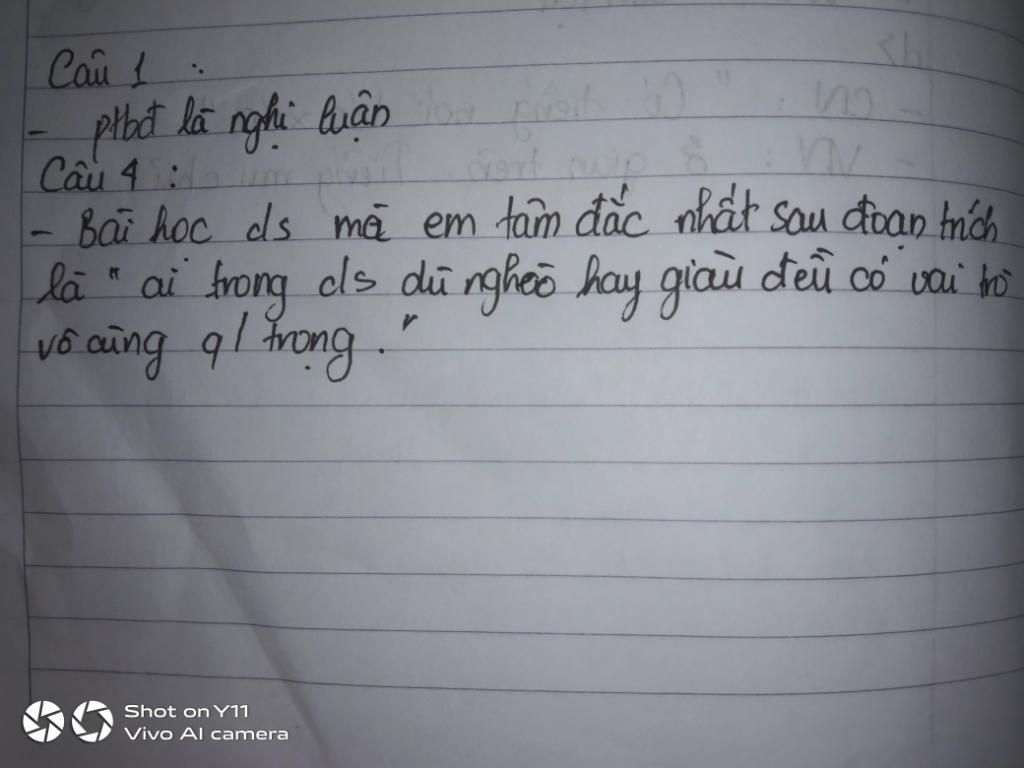 Câu 1 :
- ptbđ là nghị luận
Câu 4 :
- Bài học ds mà em tâm đắc nhất sau đoạn trích
là " ai trong ds dù nghèo hay giàu đều có vai trò
vô cùng q/ trọng . "
Shot on Y11
Vivo AI camera